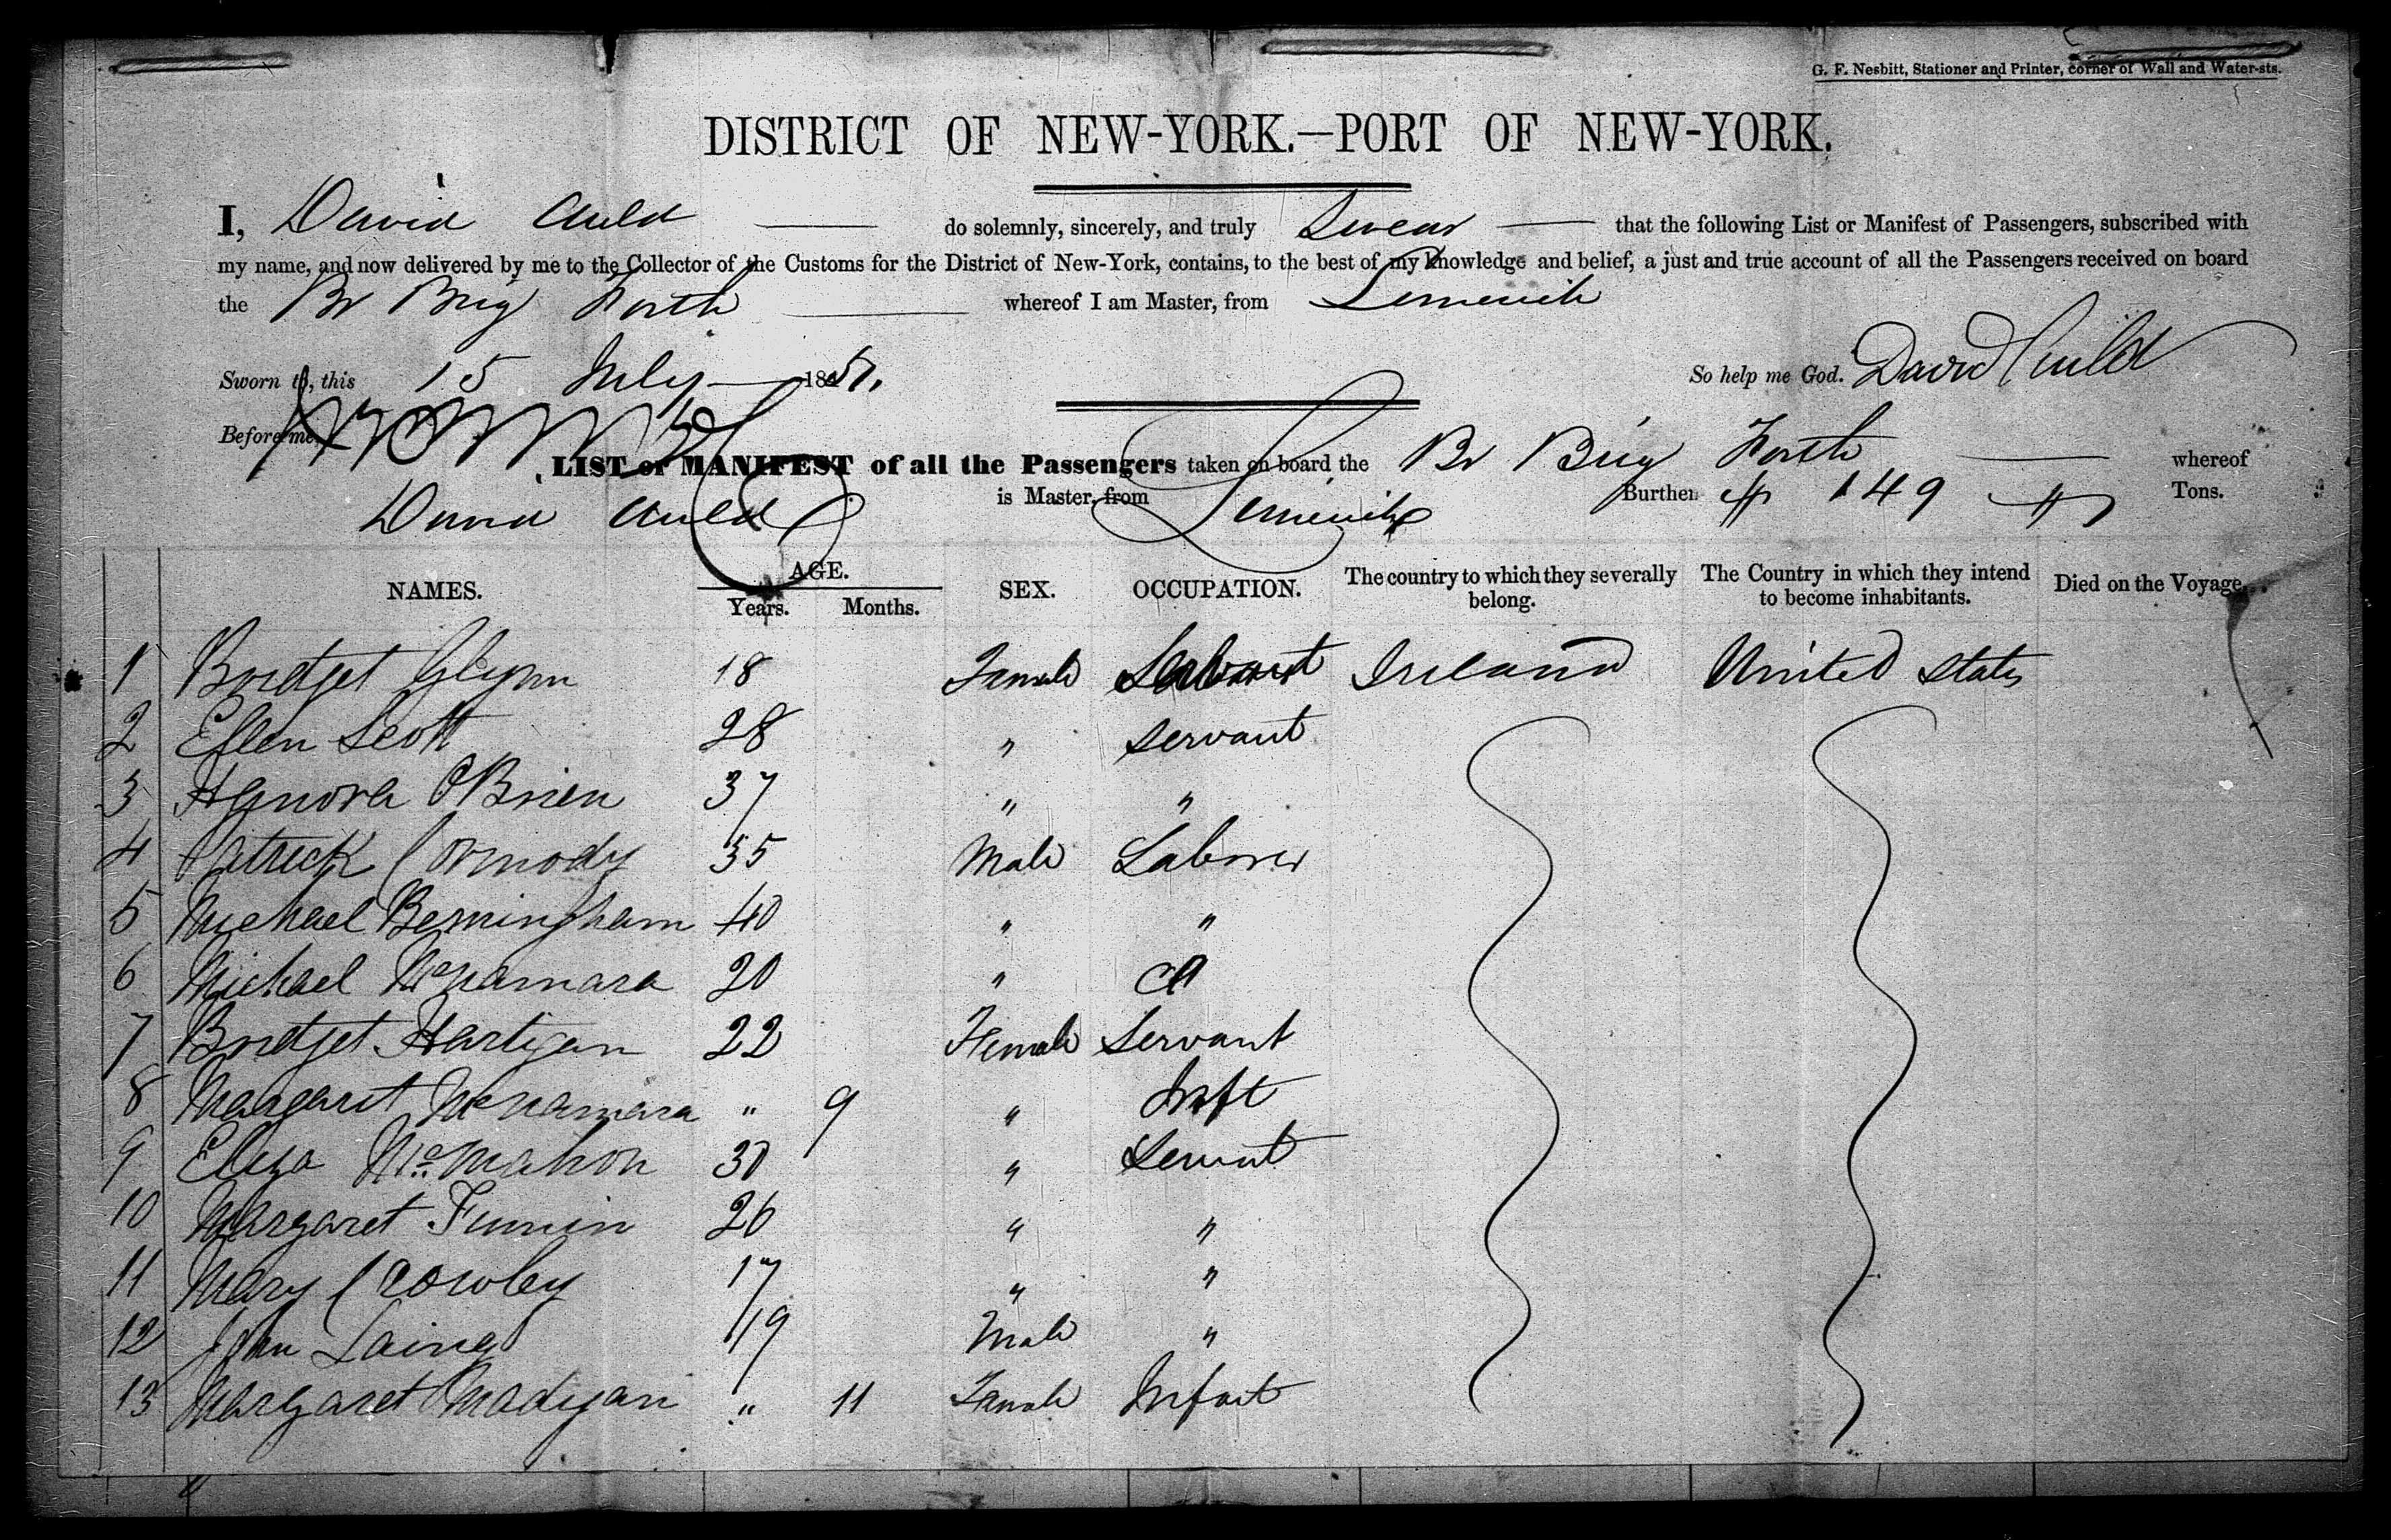 G. F. Nesbitt, Stationer and Printer, corner of Wall and Water-sts.
DISTRICT OF NEW-YORK.—PORT OF NEW-YORK.
I, David Auld do solemnly, sincerely, and truly Swear that the following List or Manifest of Passengers, subscribed with
my name, and now delivered by me to the Collector of the Customs for the District of New-York, contains, to the best of my knowledge and belief, a just and true account of all the Passengers received on board
the Br Brig Forth whereof I am Master, from Limerick
Sworn to, this 15 July 1851. So help me God. David Auld
Before me,
LIST or MANIFEST of all the Passengers taken on board the Br Brig Forth whereof
David Auld is Master, from Limerick Burthen 149 Tons.
NAMES. AGE. Years. Months. SEX. OCCUPATION. The country to which they severally belong. The Country in which they intend to become inhabitants. Died on the Voyage.
1 Bridget Glynn 18 Female Servant Ireland United States
2 Ellen Scott 28 " servant
3 Honora O'Brien 37 " "
4 Patrick Cormody 35 Male Laborer
5 Michael Bermingham 40 " "
6 Michael McNamara 20 "
7 Bridget Hartigan 22 Female Servant
8 Margaret McNamara " 9 " Inft
9 Eliza McMahon 30 " Servant
10 Margaret 26 " "
11 Mary Crowley 17 " "
12 John Laing 19 Male "
13 Margaret Madigan " 11 Female Infant